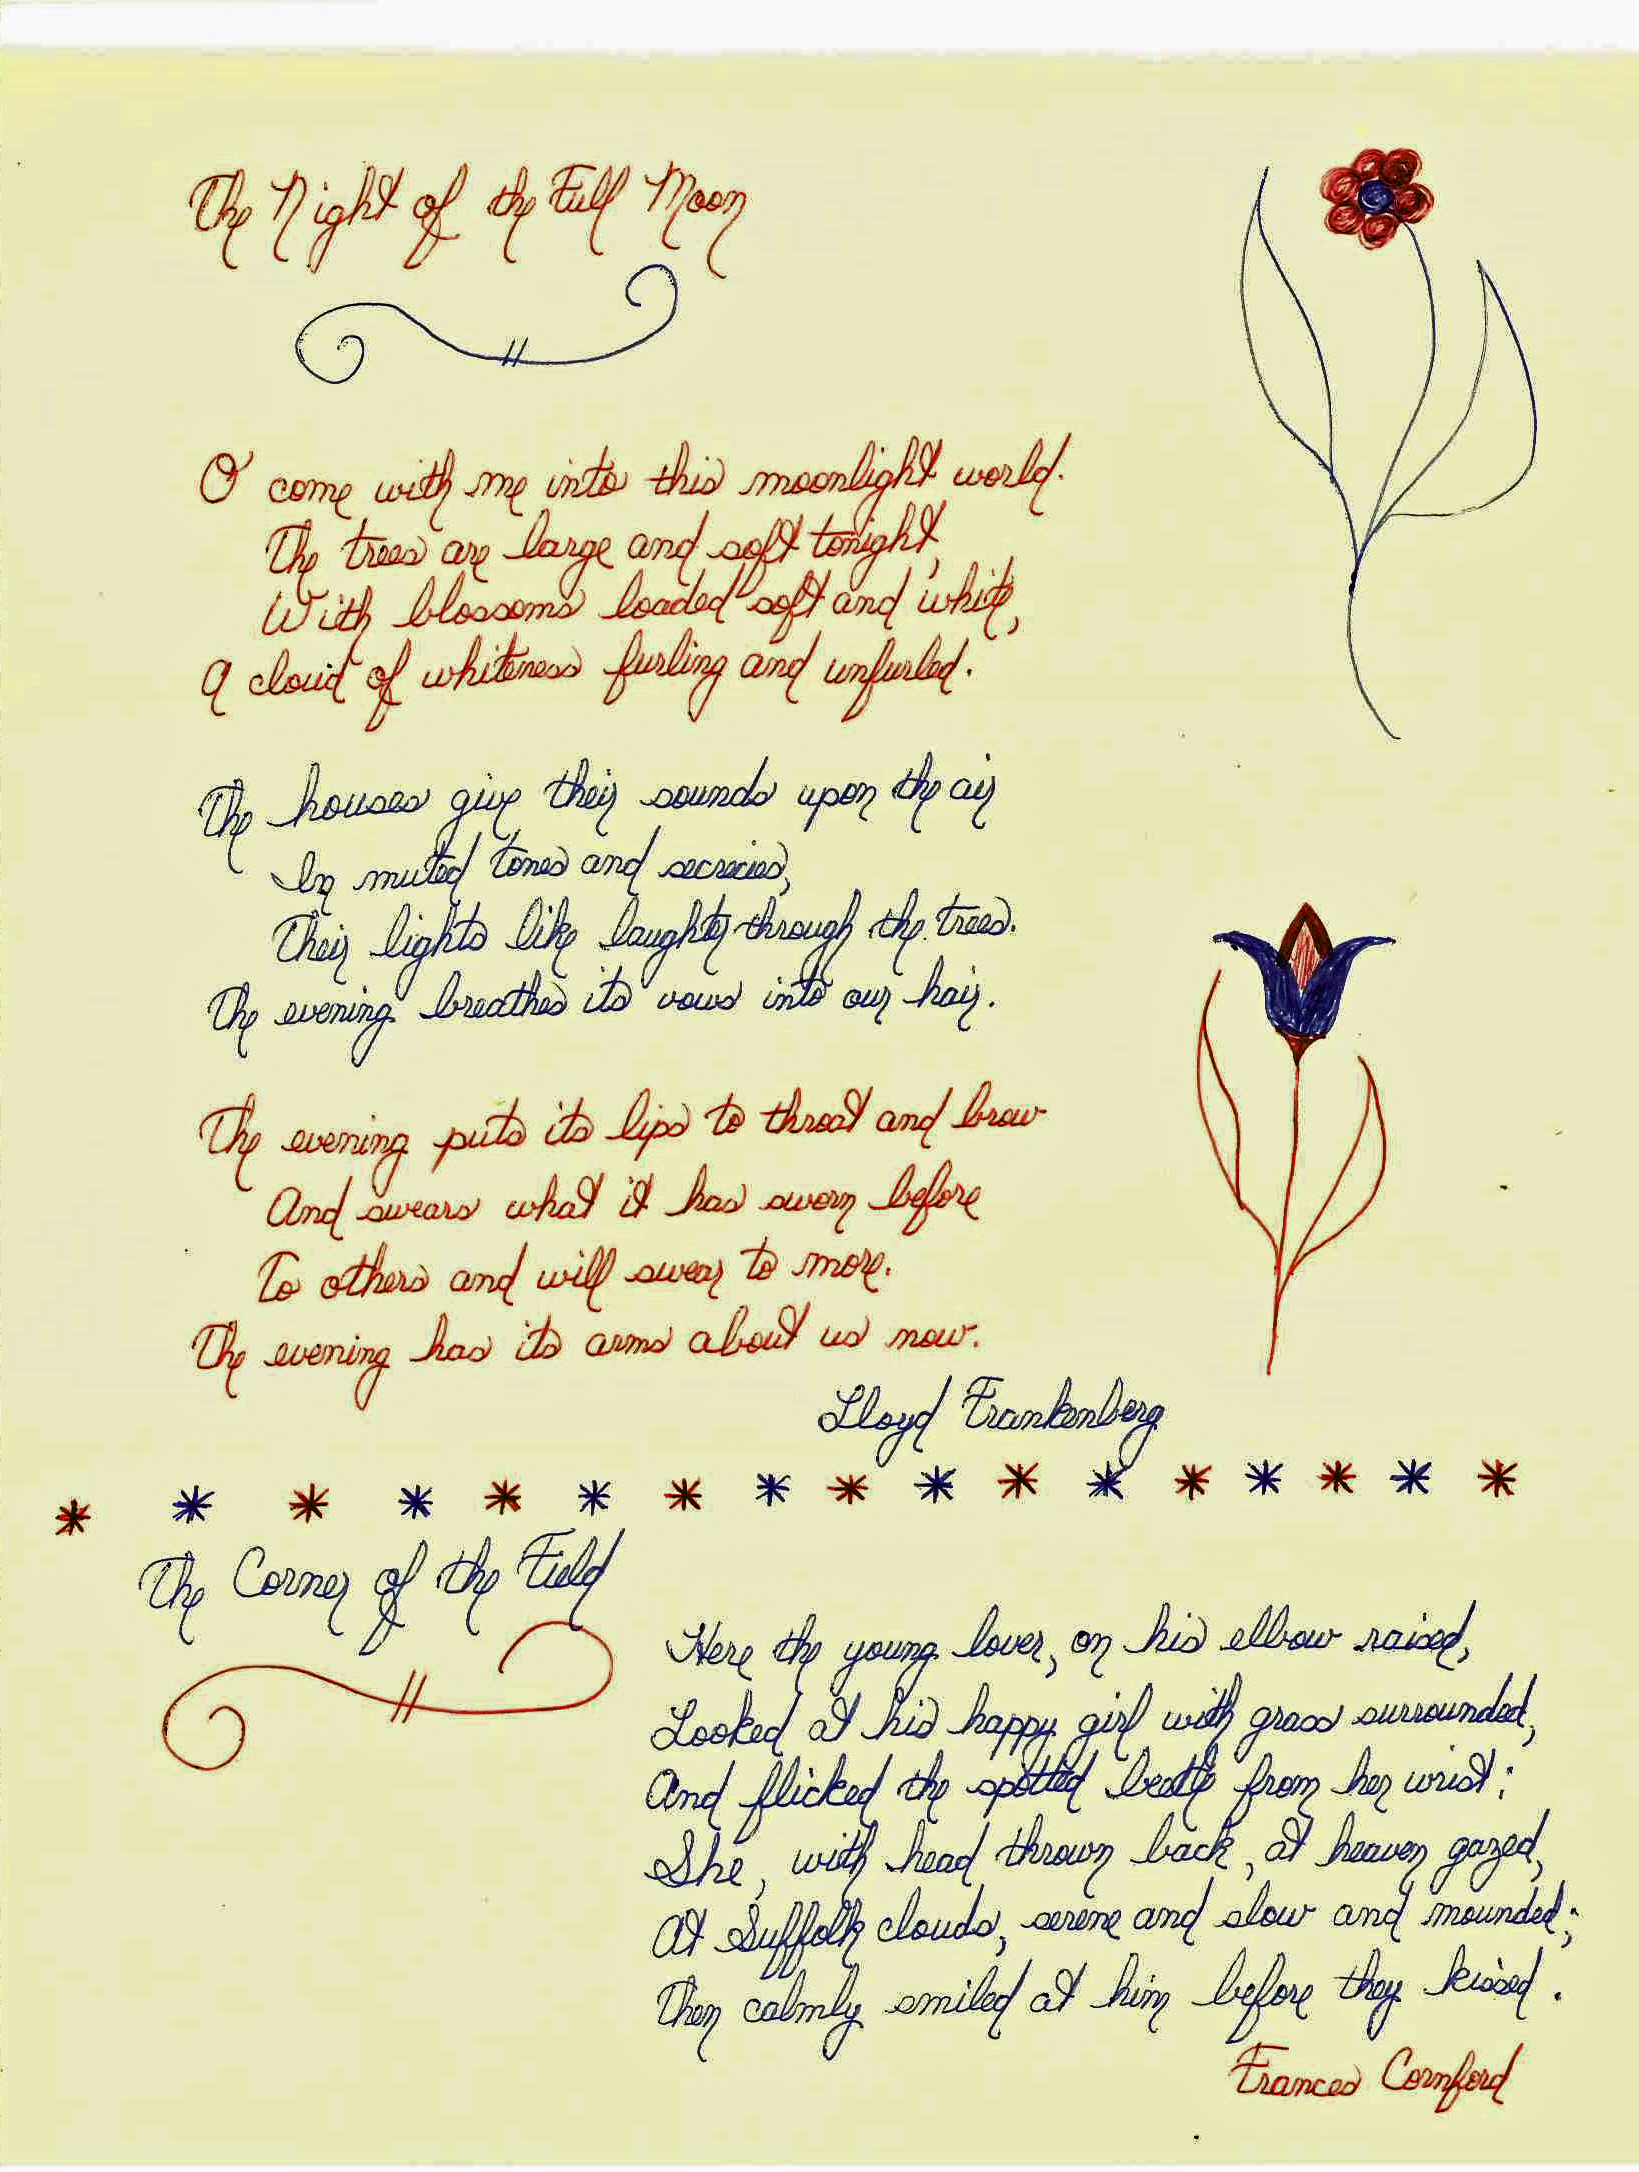 The Night of the Full Moon
O come with me into this moonlight world.
The trees are large and soft tonight,
With blossoms loaded soft and white,
A cloud of whiteness furling and unfurled.
The houses give their sounds upon the air
In muted tones and secrecies,
Their lights like laughter through the trees.
The evening breathes its vows into our hair.
The evening puts its lips to throat and brow
And swears what it has sworn before
To others and will swear to more.
The evening has its arms about us now.
Lloyd Frankenberg
The Corner of the Field
Here the young lover, on his elbow raised,
Looked at his happy girl with grass surrounded,
And flicked the spotted beetle from her wrist;
She, with head thrown back, at heaven gazed,
At Suffolk clouds, serene and slow and mounded;
Then calmly smiled at him before they kissed.
Frances Cornford